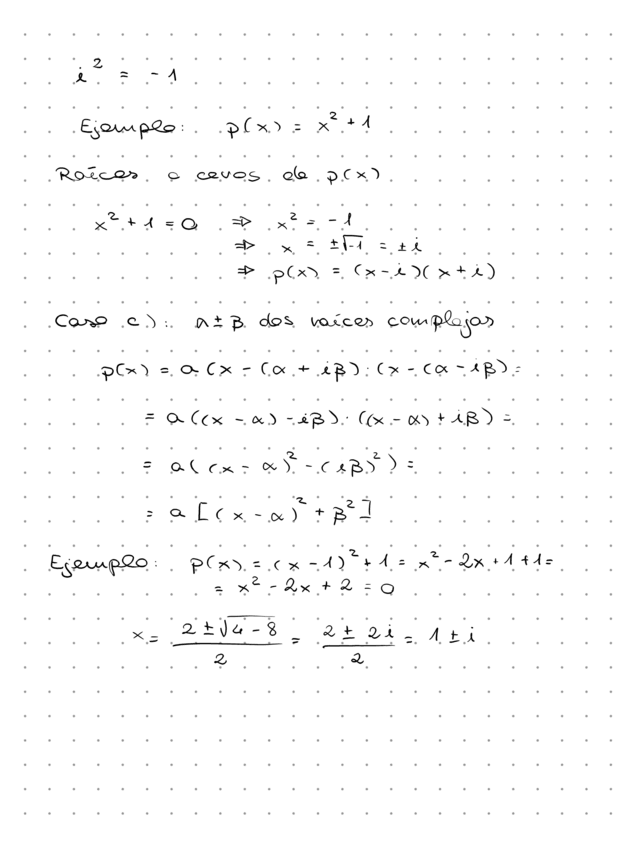 i² = -1
Ejemplo: p(x) = x² + 1
Raíces o ceros de p(x)
x² + 1 = 0 ⇒ x² = -1
⇒ x = ±√-1 = ± i
⇒ p(x) = (x-i)(x+i)
Caso c): α ± β dos raíces complejas
p(x) = a (x - (α + iβ) · (x - (α - iβ) =
= a((x - α) - iβ) · ((x - α) + iβ) =
= a( (x - α)² - (iβ)² ) =
= a [(x - α)² + β²]
Ejemplo: p(x) = (x - 1)² + 1 = x² - 2x + 1 + 1 =
= x² - 2x + 2 = 0
x = (2 ± √4 - 8)/2 = (2 ± 2i)/2 = 1 ± i